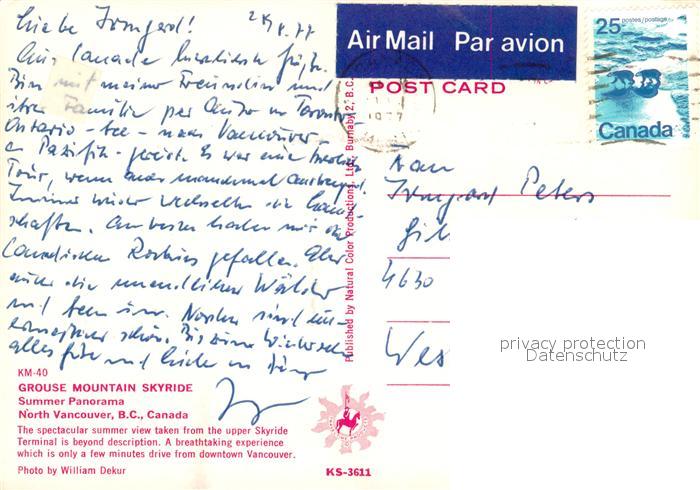 Liebe Irmgard!
Aus Canada herzlichste Grüße.
Bin mit meiner Freundin und
ihrer Familie per Auto von Toronto
Ontario-See - nach Vancouver -
Pazifik - gereist. Es war eine
Tour, wenn auch manchmal
Immer wieder wechselten die Land-
schaften. Am besten haben mir die
Canadischen Rockies gefallen. Aber
auch die unendlichen Wälder
und Seen im Norden sind
schön. Bis zum
alles Gute und
AirMail Par avion
25 postes/postage
Canada
1977
POST CARD
Published by Natural Color Productions, Ltd., Burnaby 2, B.C.
Frau
Irmgard Peters
4630
Wes
privacy protection
Datenschutz
KM-40
GROUSE MOUNTAIN SKYRIDE
Summer Panorama
North Vancouver, B.C., Canada
The spectacular summer view taken from the upper Skyride
Terminal is beyond description. A breathtaking experience
which is only a few minutes drive from downtown Vancouver.
Photo by William Dekur
KS-3611